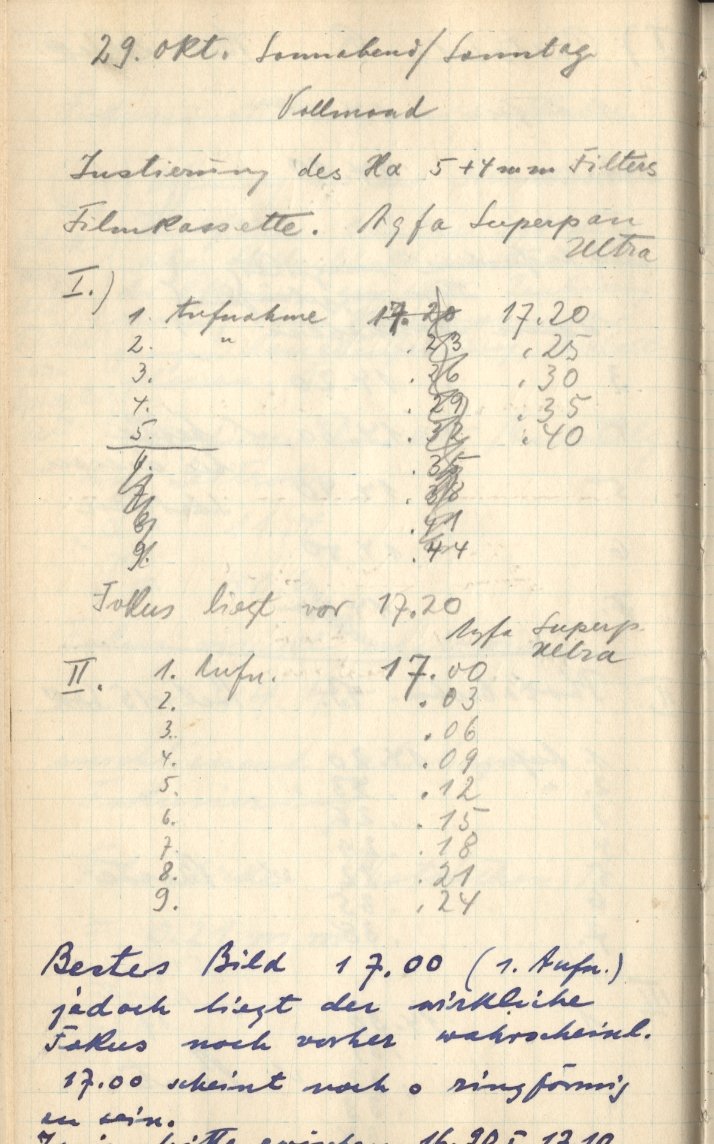 29. Okt. Sonnabend/Sonntag
Vollmond
Justierung des Hα 5+4mm Filters
Filmkassette. Agfa Superpan
Ultra
I.)
1. Aufnahme 17.20 17.20
2. " .23 .25
3. .26 .30
4. .29 .35
5. .32 .40
6. .35
7. .38
8. .41
9. .44
Fokus liegt vor 17.20
Agfa Superp.
Ultra
II. 1. Aufn. 17.00
2. .03
3. .06
4. .09
5. .12
6. .15
7. .18
8. .21
9. .24
Bestes Bild 17.00 (1. Aufn.)
jedoch liegt der wirkliche
Fokus noch vorher wahrscheinl.
17.00 scheint noch o ringförmig
zu sein.
zwischen 16.90